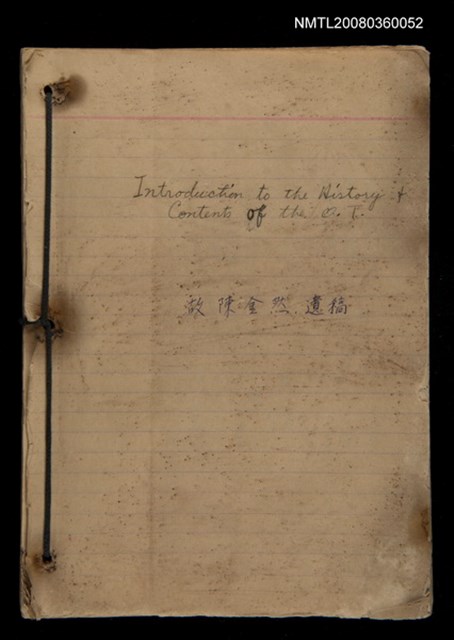 NMTL20080360052
Introduction to the History &
Contents of the O. T.
故 陳 金 然 遺 稿